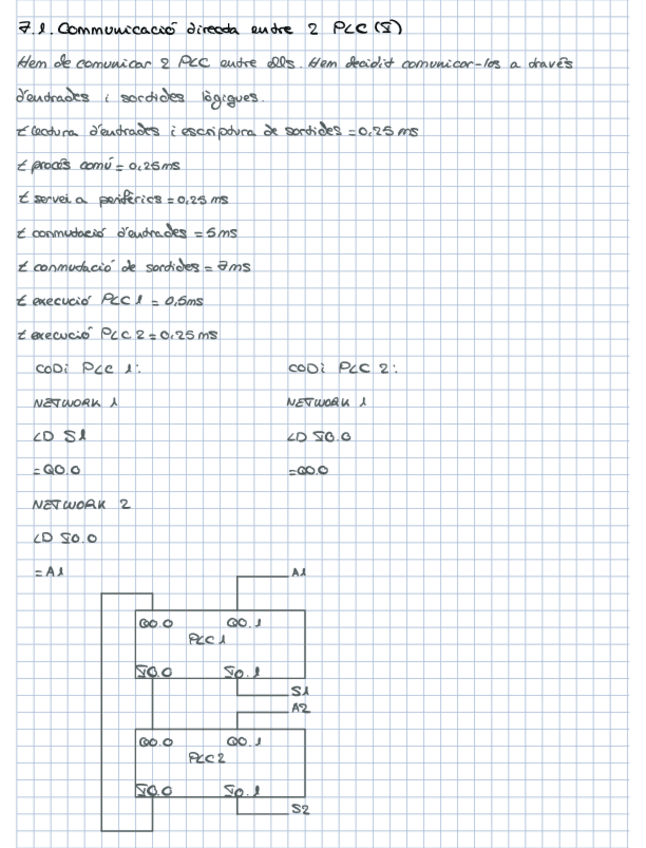 7.1. Communicació directa entre 2 PLC (I)
Hem de comunicar 2 PLC entre ells. Hem decidit comunicar-los a través
d'entrades i sortides lògiques.
t lectura d'entrades i escriptura de sortides = 0,25 ms
t procés comú = 0,25ms
t servei a perifèrics = 0,25 ms
t conmutació d'entrades = 5ms
t conmutació de sortides = 7ms
t execució PLC 1 = 0,5ms
t execució PLC 2 = 0,25 ms
CODi PLC 1: CODi PLC 2:
NETWORK 1 NETWORK 1
LD S1 LD I0.0
=Q0.0 =Q0.0
NETWORK 2
LD I0.0
=A1
A1
Q0.0 Q0.1
PLC1
I0.0 I0.1
S1
A2
Q0.0 Q0.1
PLC2
I0.0 I0.1
S2